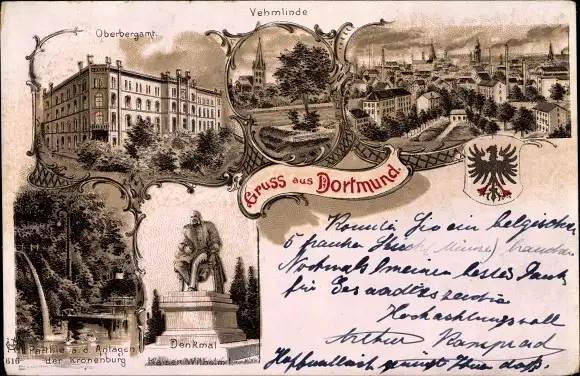 Vehmlinde
Oberbergamt.
Gruss aus Dortmund.
Können Sie ein belgisches
5 franken Stück (Münze) brauchen
Nochmals meinen besten Dank
für
Hochachtungsvoll
Arthur
Hoffentlich genügt Ihnen das.
Parthie a.d. Anlagen
der Kronenburg
Denkmal
Kaiser Wilhelm
616